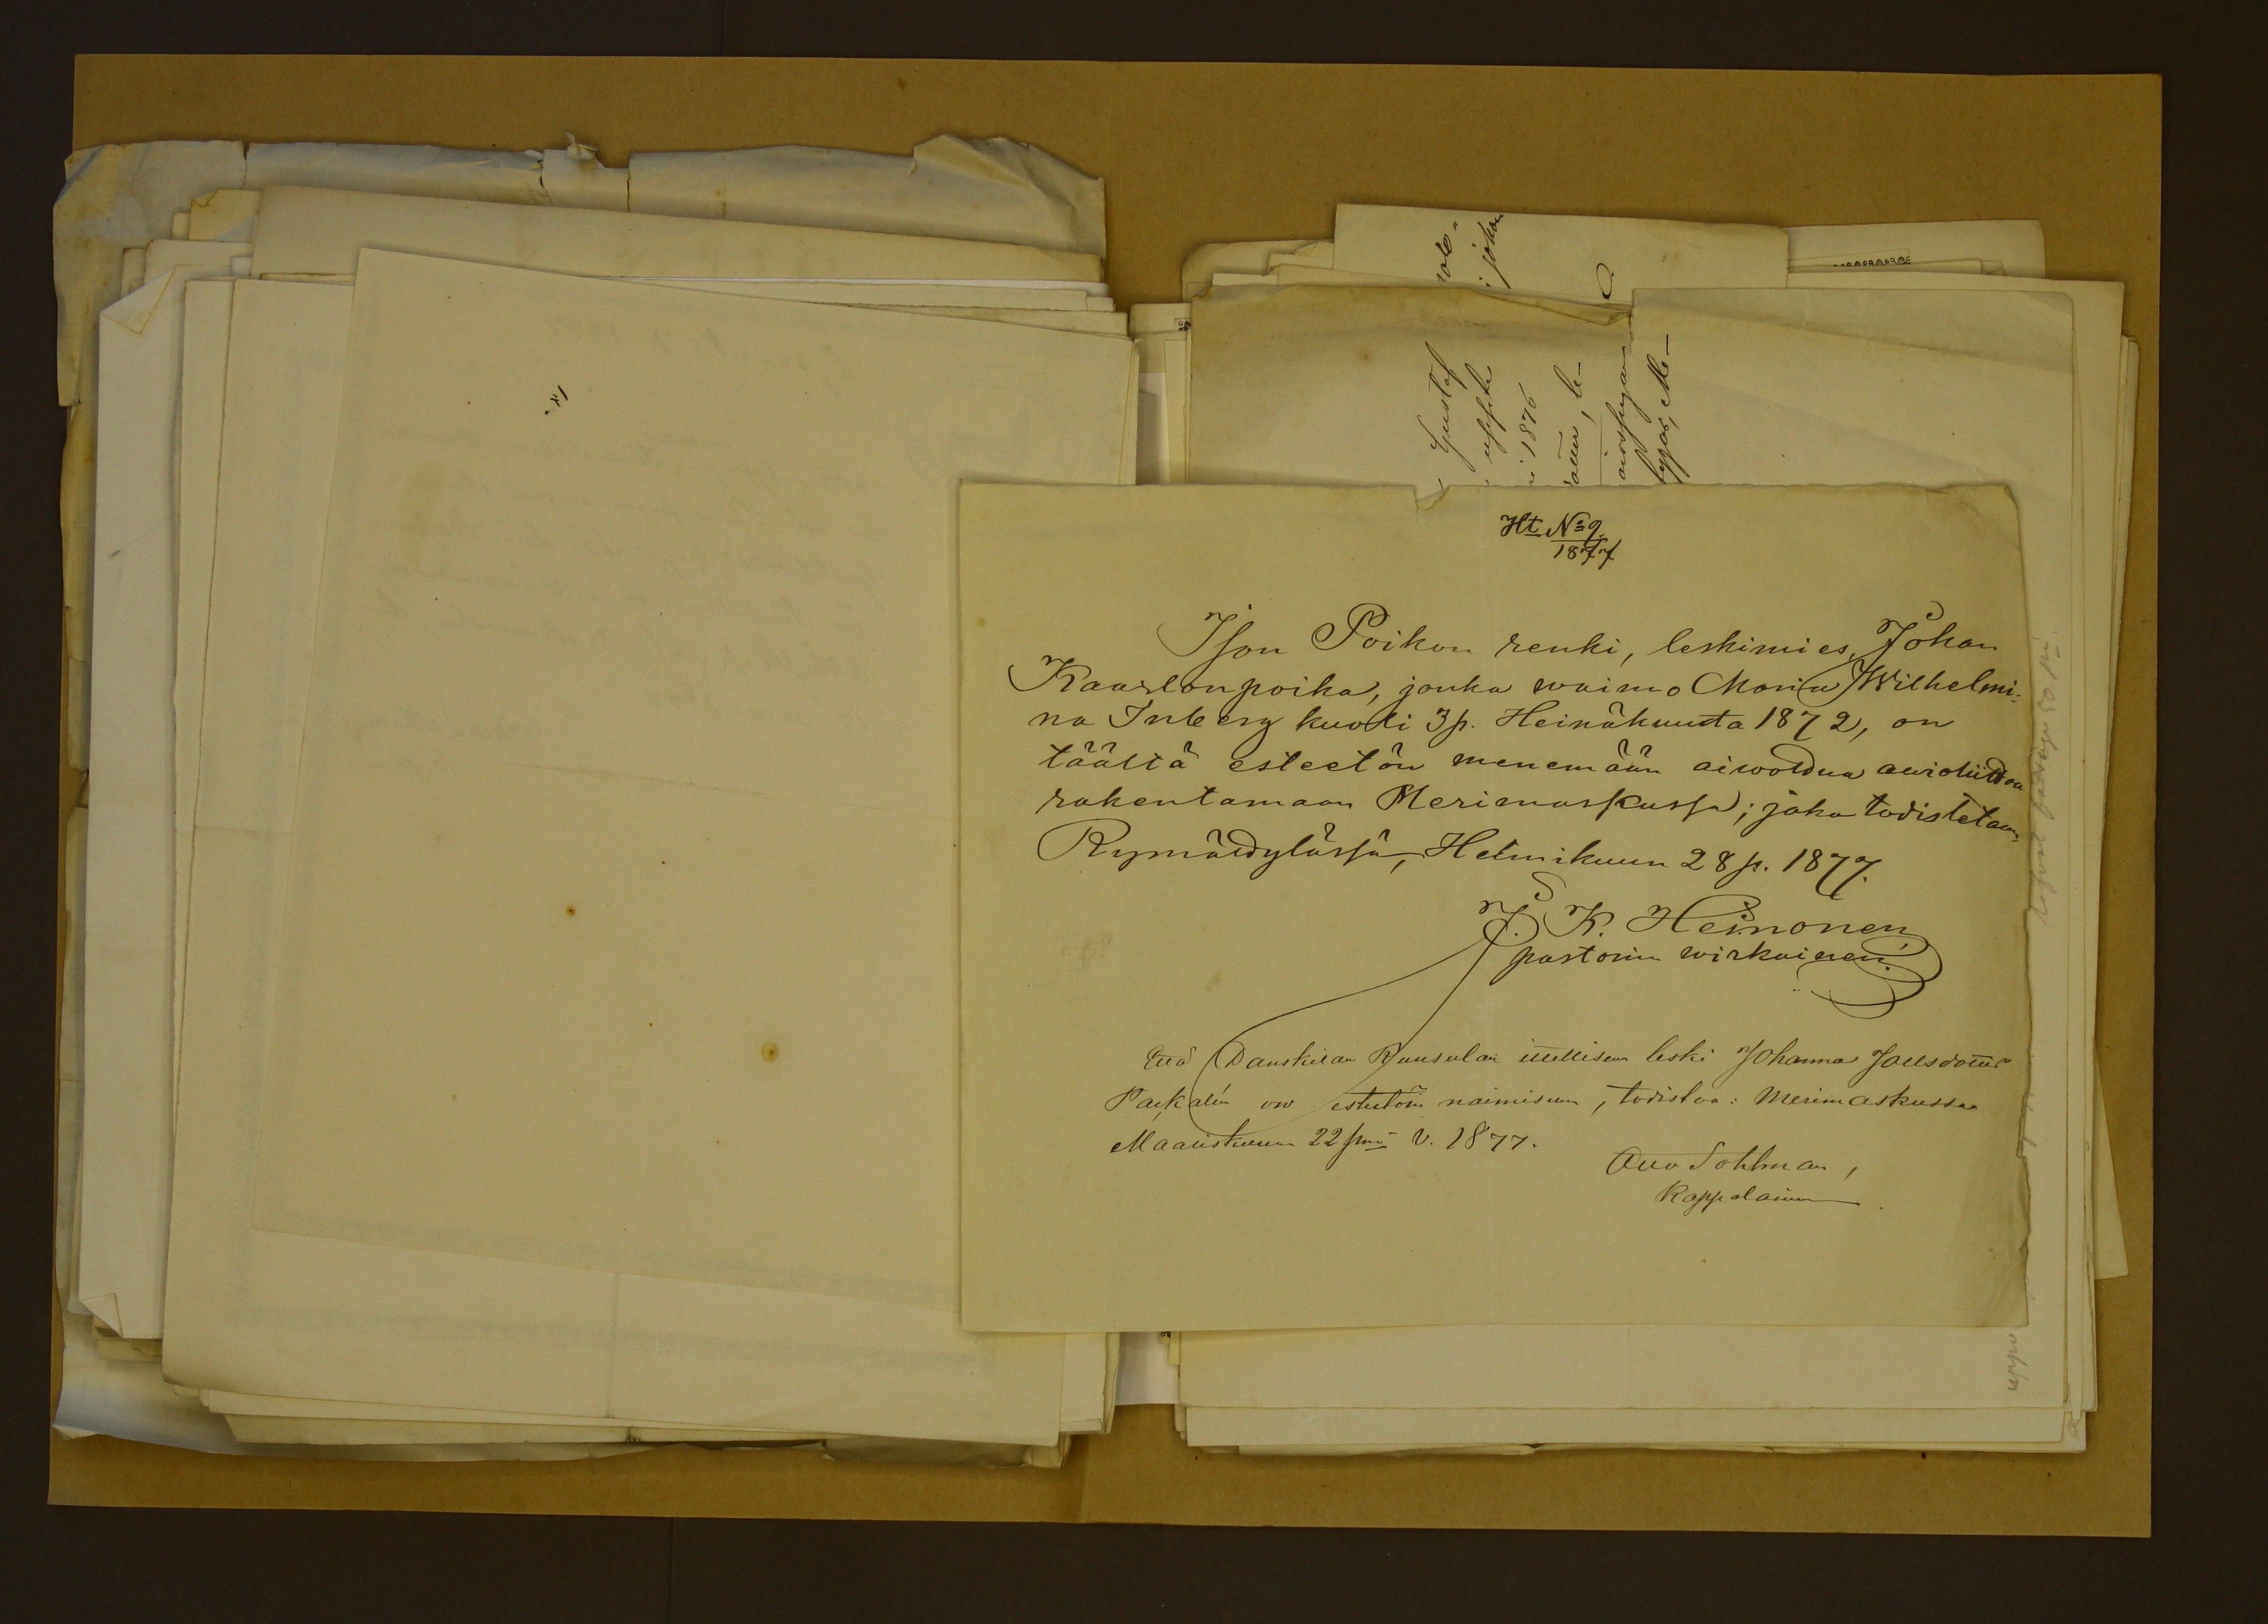 Ht No 9.
1877
Ison Poikon renki, leskimies, Johan
Kaarlonpoika, jonka waimo Maria Wilhelmi-
na Inberg kuoli 3 p. Heinäkuuta 1872, on
täältä esteetön menemään aiwottua awioliittoa
rakentamaan Merimaskussa; joka todistetaan
Rymättylässä, Helmikuun 28 p. 1877.
J. K. Heinonen
pastorin wirkainen.
Että Danskilan itsellisen leski Johanna
on esteetön naimiseen, todistaa: Merimaskussa
Maaliskuun 22 pnä v. 1877.
Otto Sohlman,
Kappalainen
Gustaf
i 1876